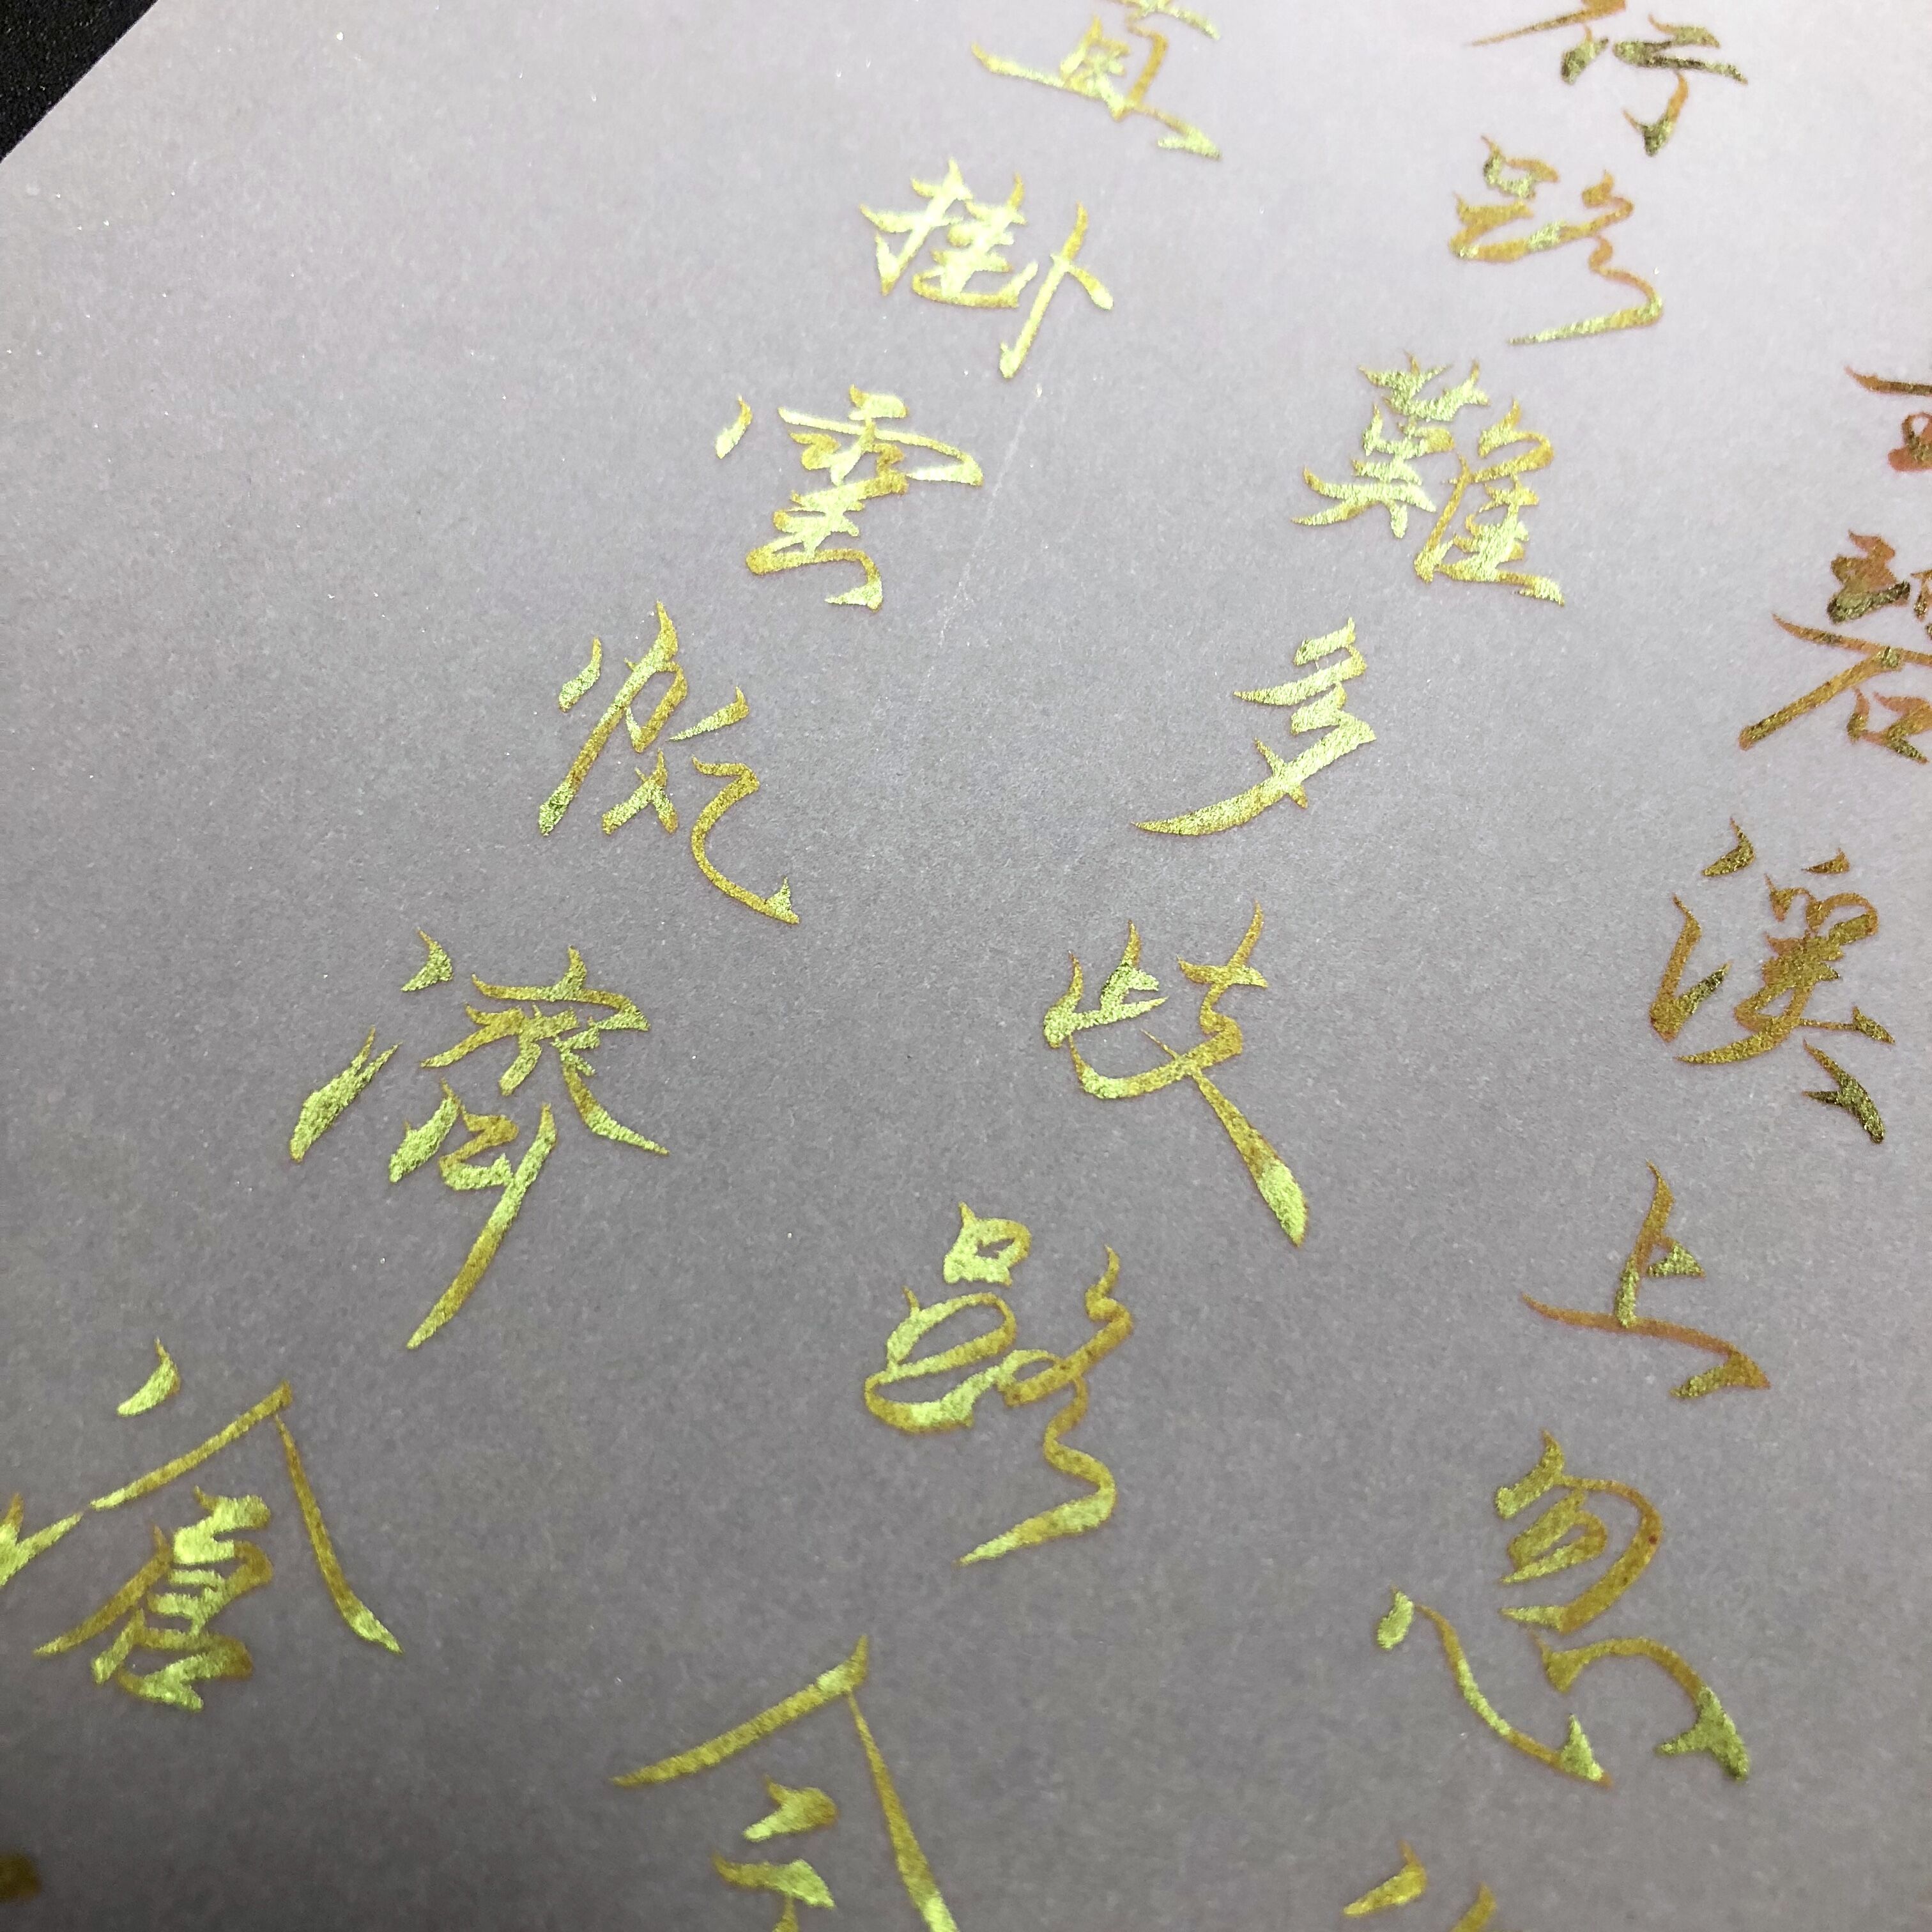 碧溪上忽
行路難多歧路今
直掛雲帆濟滄